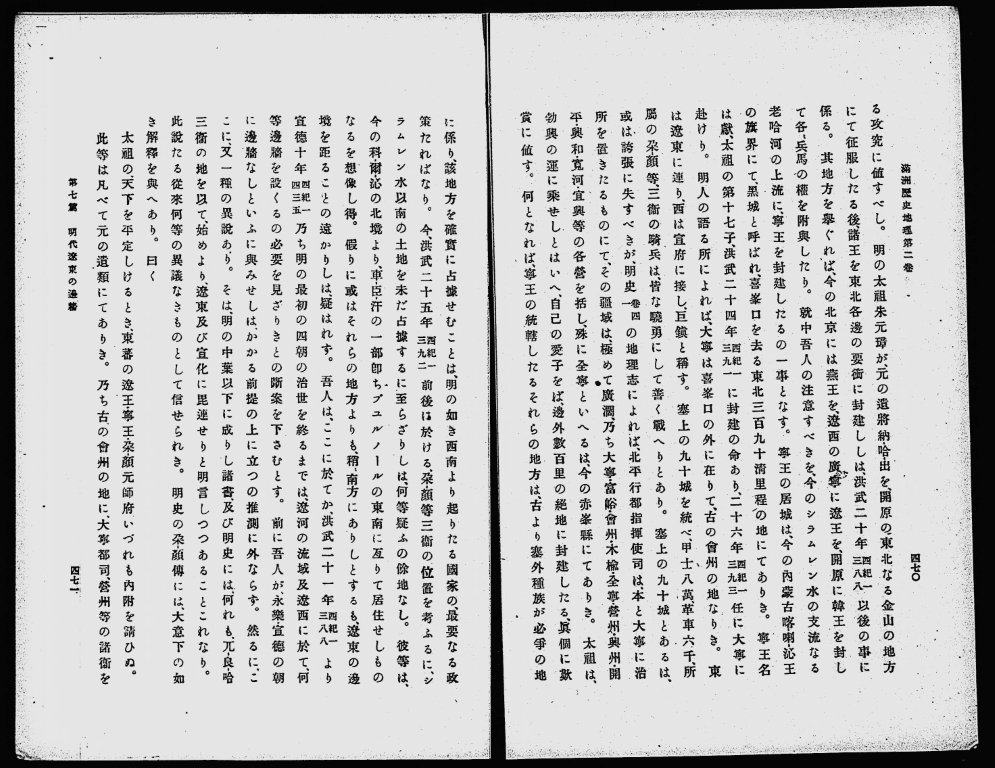 滿洲歷史地理第二卷
四七〇
る攻究に値すべし。明の太祖朱元璋が、元の遺將納哈出を、開原の東北なる金山の地方
にて征服したる後、諸王を東北各邊の要衝に封建しゝは、洪武二十年西紀一三八八以後の事に
係る。其地方を擧ぐれば、今の北京には燕王を、遼西の廣寧に遼王を、開原に韓王を封し
て各〻兵馬の權を附與したり。就中吾人の注意すべきを、今のシラムレン水の支流なる
老哈河の上流に、寧王を封建したるの一事となす。寧王の居城は、今の內蒙古喀喇沁王
の旗界にて、黑城と呼ばれ、喜峯口を去る東北三百九十淸里程の地にてありき。寧王名
は獻、太祖の第十七子、洪武二十四年西紀一三九一に封建の命あり、二十六年西紀一三九三任に大寧に
赴けり。明人の語る所によれば、大寧は喜峯口の外に在りて、古の會州の地なりき。東
は遼東に連り、西は宣府に接し、巨鎭と稱す。塞上の九十城を統べ、甲士八萬革車六千、所
屬の朶顏等三衞の騎兵は、皆な驍勇にして善く戰へりとあり。塞上の九十城とあるは、
或は誇張に失すべきが、明史卷四一の地理志によれば、北平行都指揮使司は、本と大寧に治
所を置きたるものにて、その疆域は、極めて廣濶、乃ち大寧富峪會州木楡全寧營州興州開
平興和寬河宜興等の各營を括し、殊に全寧といへるは、今の赤峯縣にてありき。太祖は、
勃興の運に乘せしとはいへ、自己の愛子をば邊外數百里の絕地に封建したる、眞個に歎
賞に値す。何となれば、寧王の統轄したるそれらの地方は、古より塞外種族が必爭の地
に係り、該地方を確實に占據せむことは、明の如き西南より起りたる國家の最要なる政
策たればなり。今洪武二十五年西紀一三九二前後に於ける朶顏等三衞の位置を考ふるに、シ
ラムレン水以南の土地を未だ占據するに至らざりしは、何等疑ふの餘地なし。彼等は、
今の科爾沁の北境より、車臣汗の一部卽ちブユルノールの東南に亙りて居住せしもの
なるを想像し得。假りに或はそれらの地方よりも、稍〻南方にありしとするも、遼東の邊
境を距ることの遠かりしは疑はれず。吾人は、ここに於てか、洪武二十一年西紀一三八八より
宣德十年西紀一四三五乃ち明の最初の四朝の治世を終るまでは、遼河の流域及遼西に於て、何
等邊牆を設くるの必要を見ざりきとの斷案を下さむとす。前に吾人が、永樂宣德の朝
に邊牆なしといふに與みせしは、かかる前提の上に立つの推測に外ならず。然るに、こ
こに又一種の異說あり。そは、明の中葉以下に成りし諸書、及び明史には、何れも、兀良哈
三衞の地を以て、始めより、遼東及び宣化に毘連せりと明言しつつあることこれなり。
此說たる從來何等の異議なきものとして信せられき。明史の朶顏傳には、大意下の如
き解釋を與へあり。曰く
太祖の天下を平定しけるとき、東蕃の遼王寧王朶顏元帥府いづれも內附を請ひぬ。
此等は凡べて元の遺類にてありき。乃ち古の會州の地に、大寧都司營州等の諸衞を
第七篇　明代遼東の邊牆
四七一